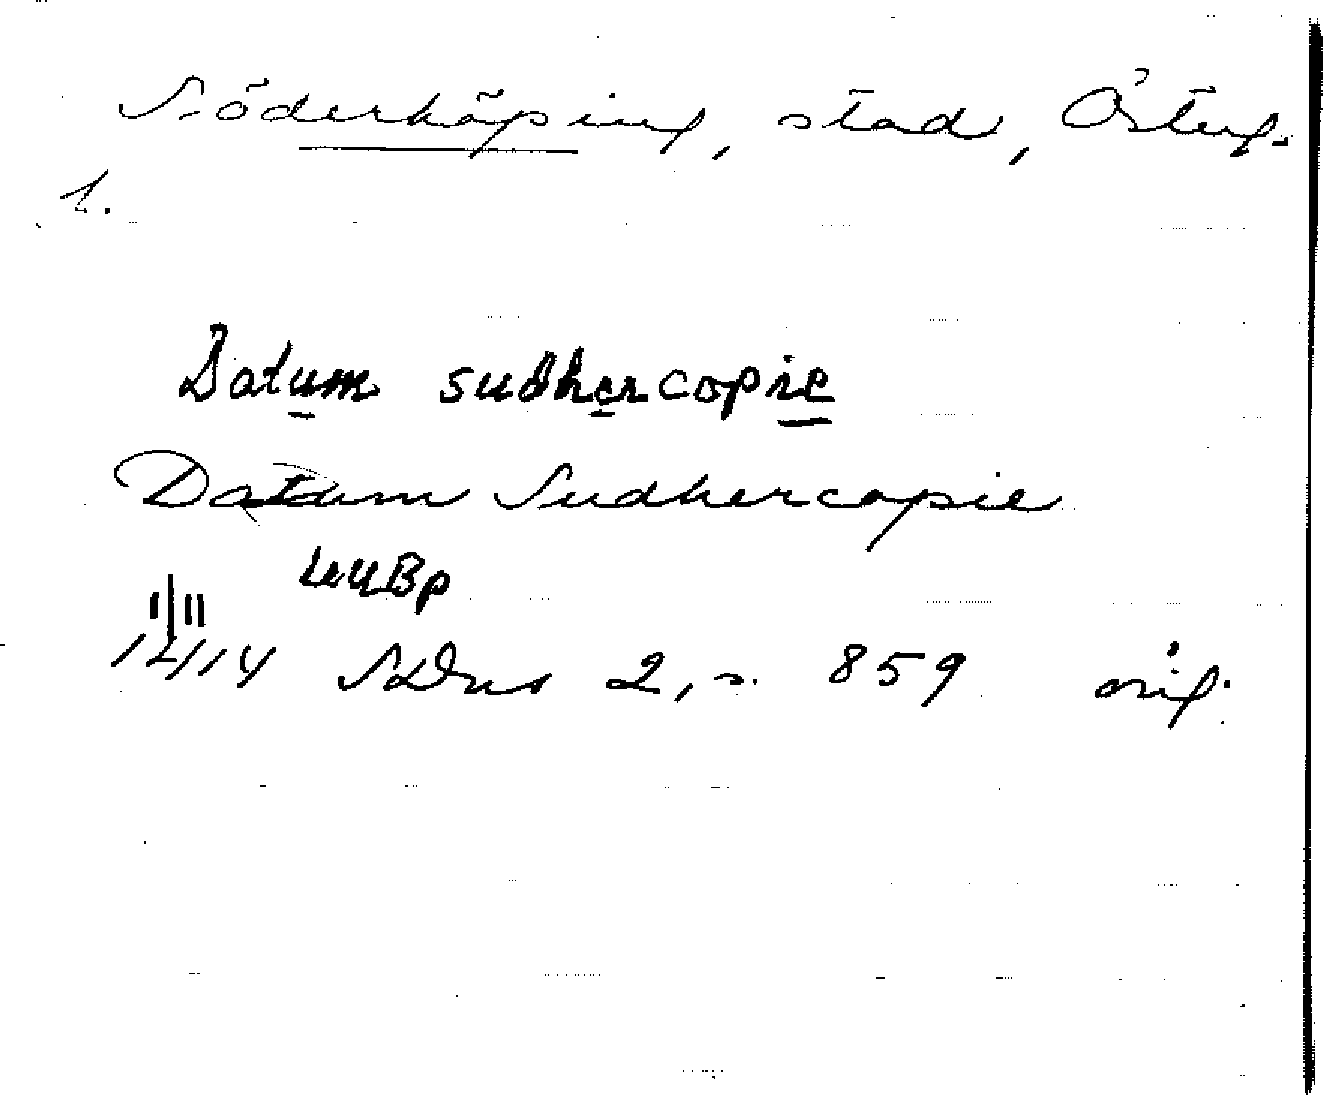 Söderköping, stad, Österg.
l.
Datum sudhercopie
Datum Sudhercopie
12/14 SDns 2, s. 859 orig.